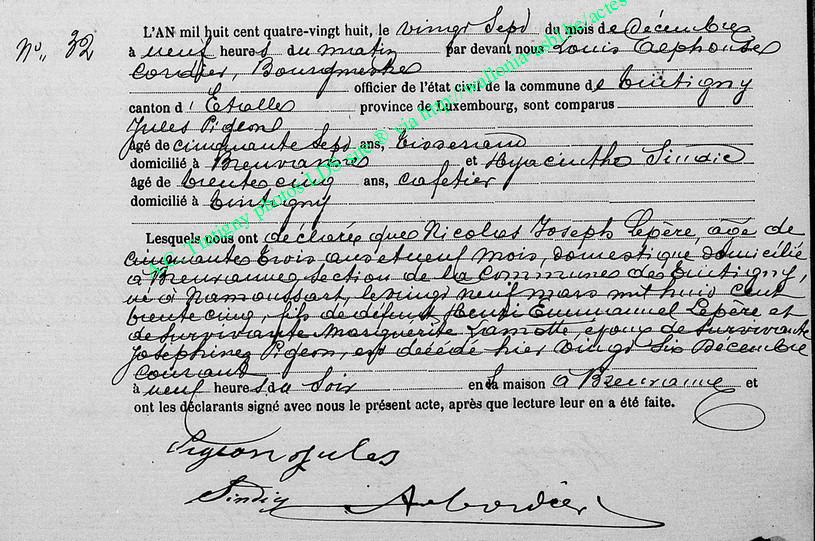 N° 32
L'AN mil huit cent quatre-vingt huit, le vingt Sept du mois de Décembre
à neuf heures du matin par devant nous Louis Alphonse
Cordier, Bourgmestre
officier de l'état civil de la commune de Tintigny
canton d'Etalle province de Luxembourg, sont comparus
Jules Pigeon
âgé de cinquante Sept ans, tisserand
domicilié à Breuvanne et Hyacinthe Sindic
âgé de trente cinq ans, cafetier
domicilié à Tintigny
Lesquels nous ont déclaré que Nicolas Joseph Lepère, âgé de
cinquante trois ans et neuf mois, domestique domicilié
à Breuvanne section de la Commune de Tintigny,
né à Namoussart, le vingt neuf mars mil huit cent
trente cinq, fils de défunt Henri Emmanuel Lepère et
de survivante Marguerite Lamotte, époux de survivante
Josephine Pigeon, est décédé hier vingt Six Décembre
courant
à neuf heures du Soir en sa maison à Breuvanne et
ont les déclarants signé avec nous le présent acte, après que lecture leur en a été faite.
Pigeon Jules
Sindic ACordier
A.E. Tintigny photos LDS
via http://wallonia-asbl.be/actes